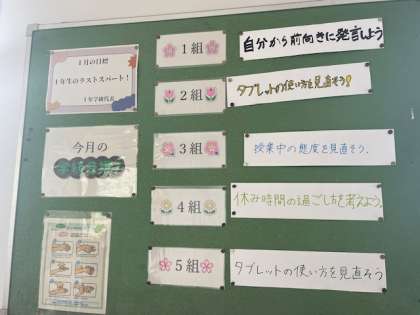 1月の目標
1年生のラストスパート!
1年学級代表
今月の
1組
自分から前向きに発言しよう
2組
タブレットの使い方を見直そう!
3組
授業中の態度を見直そう。
4組
休み時間の過ごし方を考えよう。
5組
タブレットの使い方を見直そう